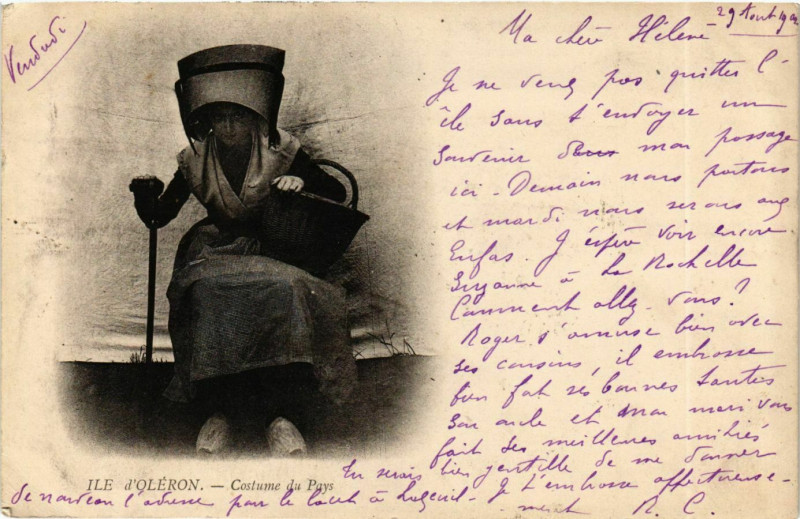 Vendredi
29 Aout 1902
Ma chère Hélène
Je ne veux pas quitter l'
île sans t'envoyer un
souvenir de mon passage
ici - Demain nous partons
et mardi nous serons aux
Enfas. J'espère voir encore
Suzanne à La Rochelle
Comment allez-vous?
Roger s'amuse bien avec
ses cousins, il embrasse
bien fort ses bonnes tantes
son oncle et mon mari vous
fait ses meilleures amitiés
Tu serais bien gentille de me donner
de nouveau l'adresse pour le lacet à Luxeuil - Je t'embrasse affectueuse-
ment R. C.
ILE d'OLÉRON. — Costume du Pays